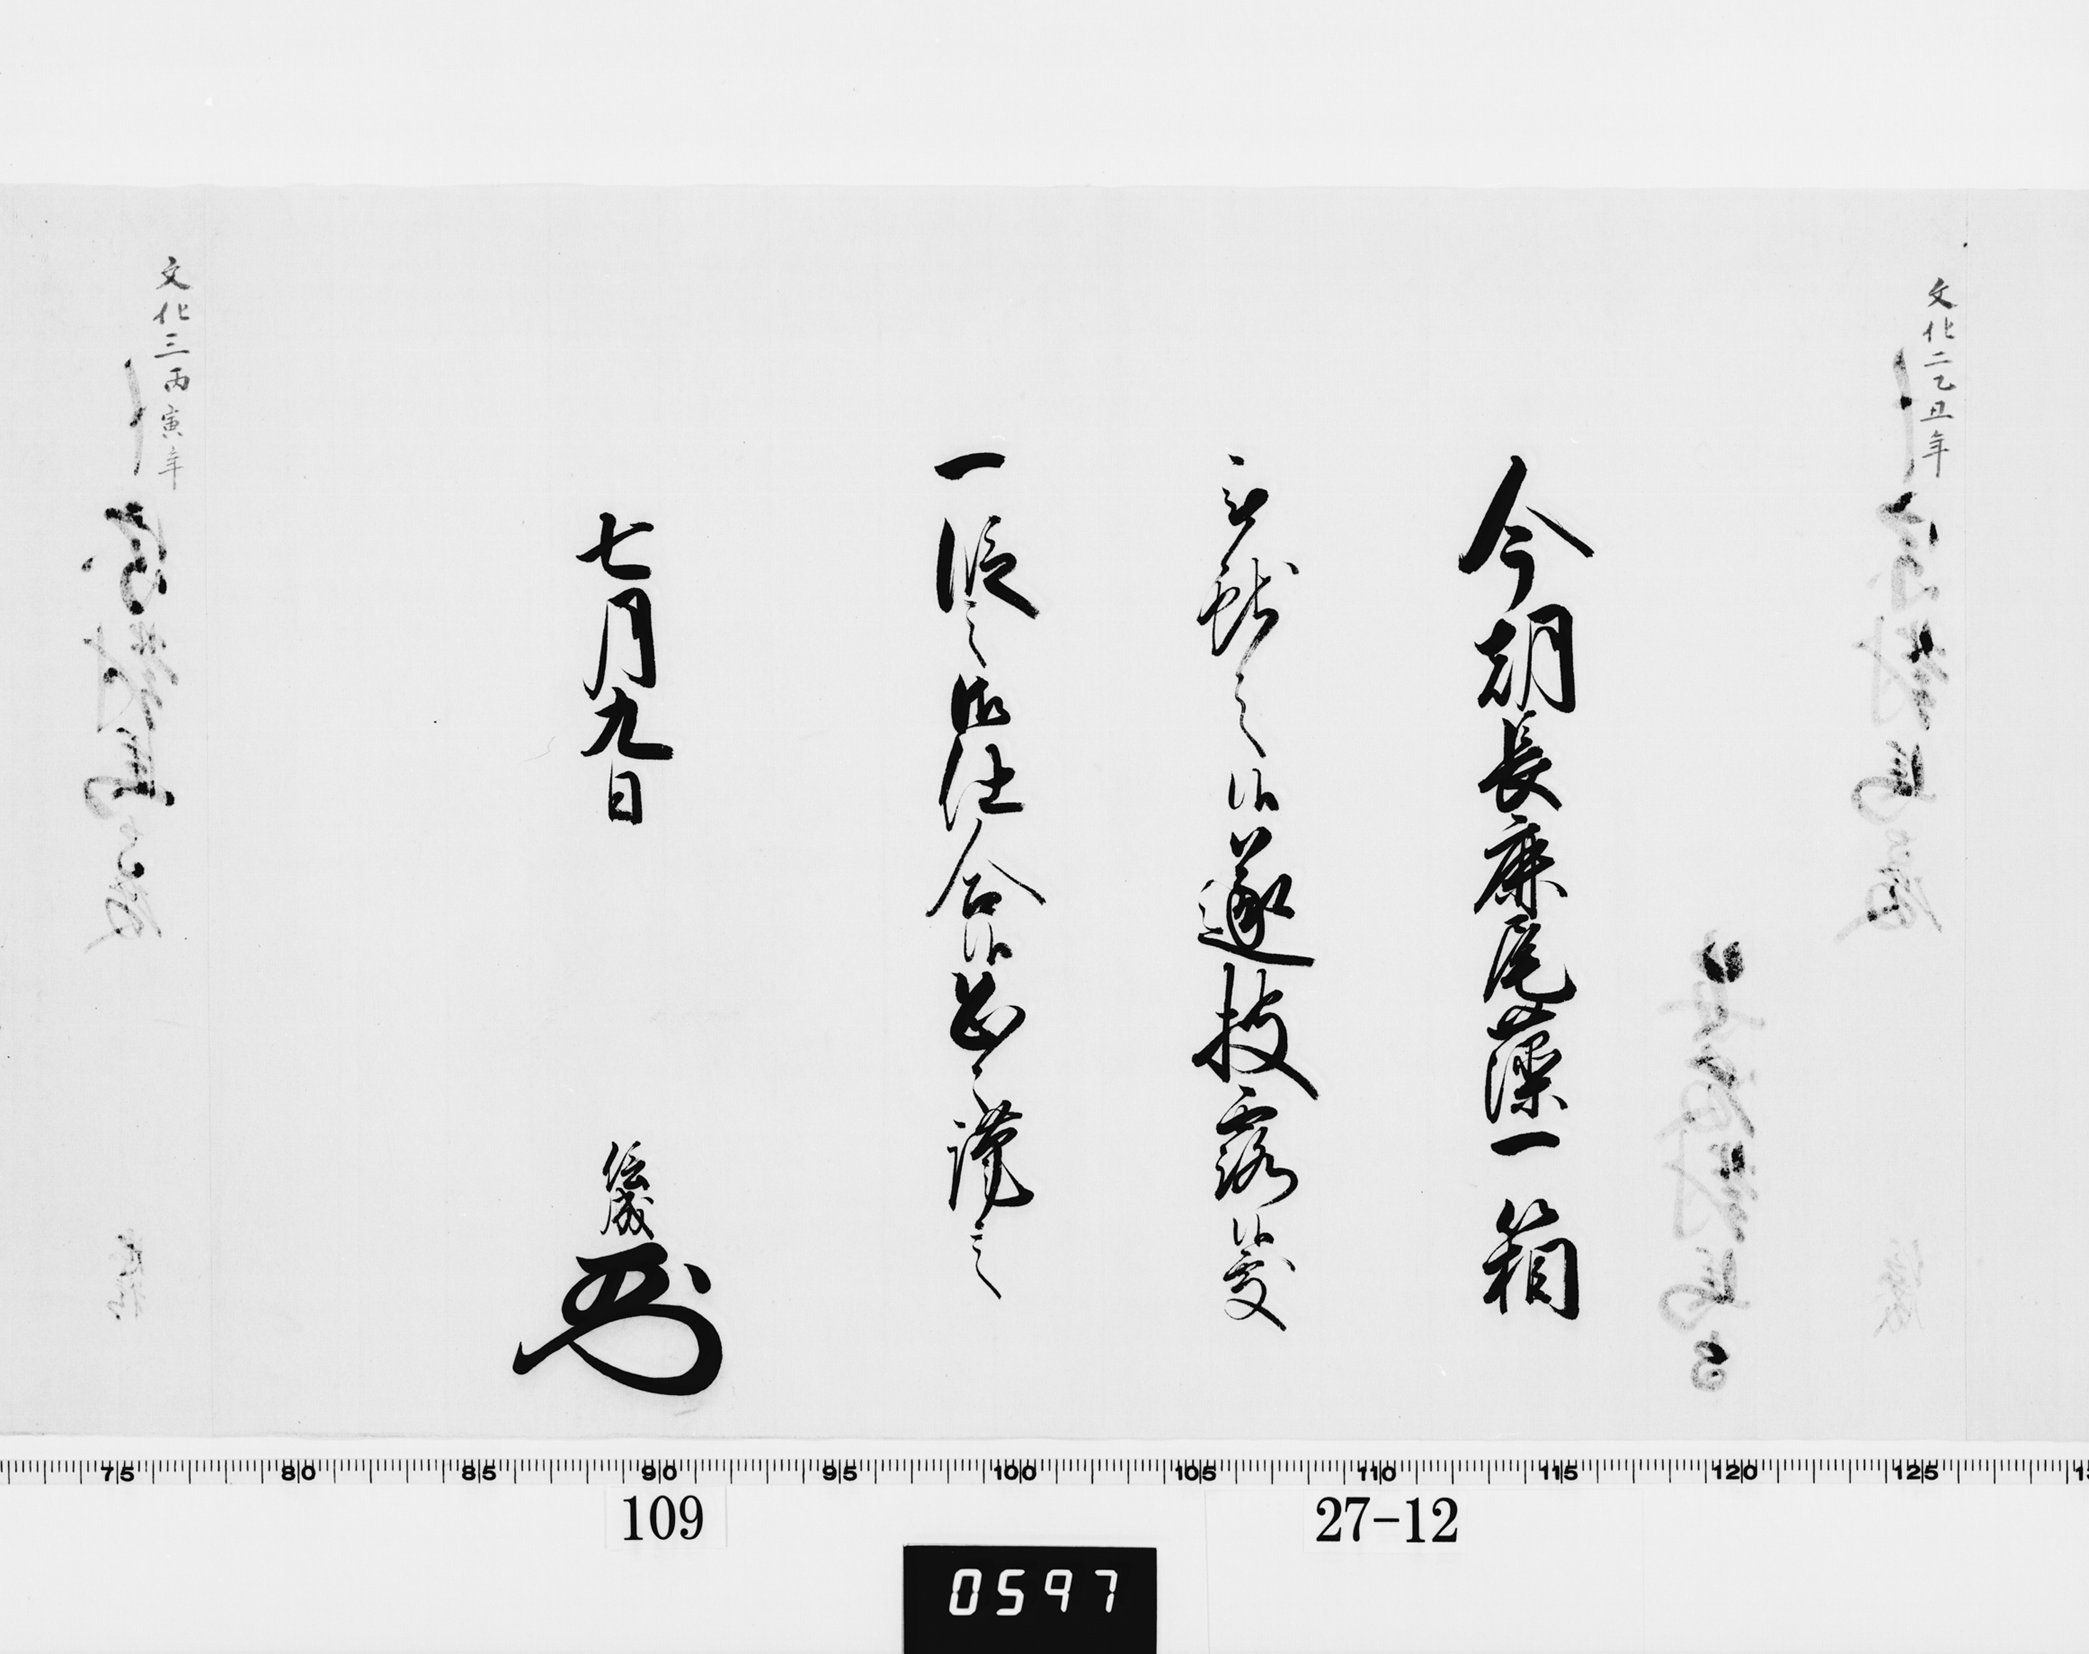 文化二乙丑年
今朝長鹿尾藻一箱
被献之候遂披露候処
一段之御仕合候恐々謹言
七月九日
信成
文化三丙寅年
75 80 85 90 95 100 105 110 115 120 125
109
27-12
0597